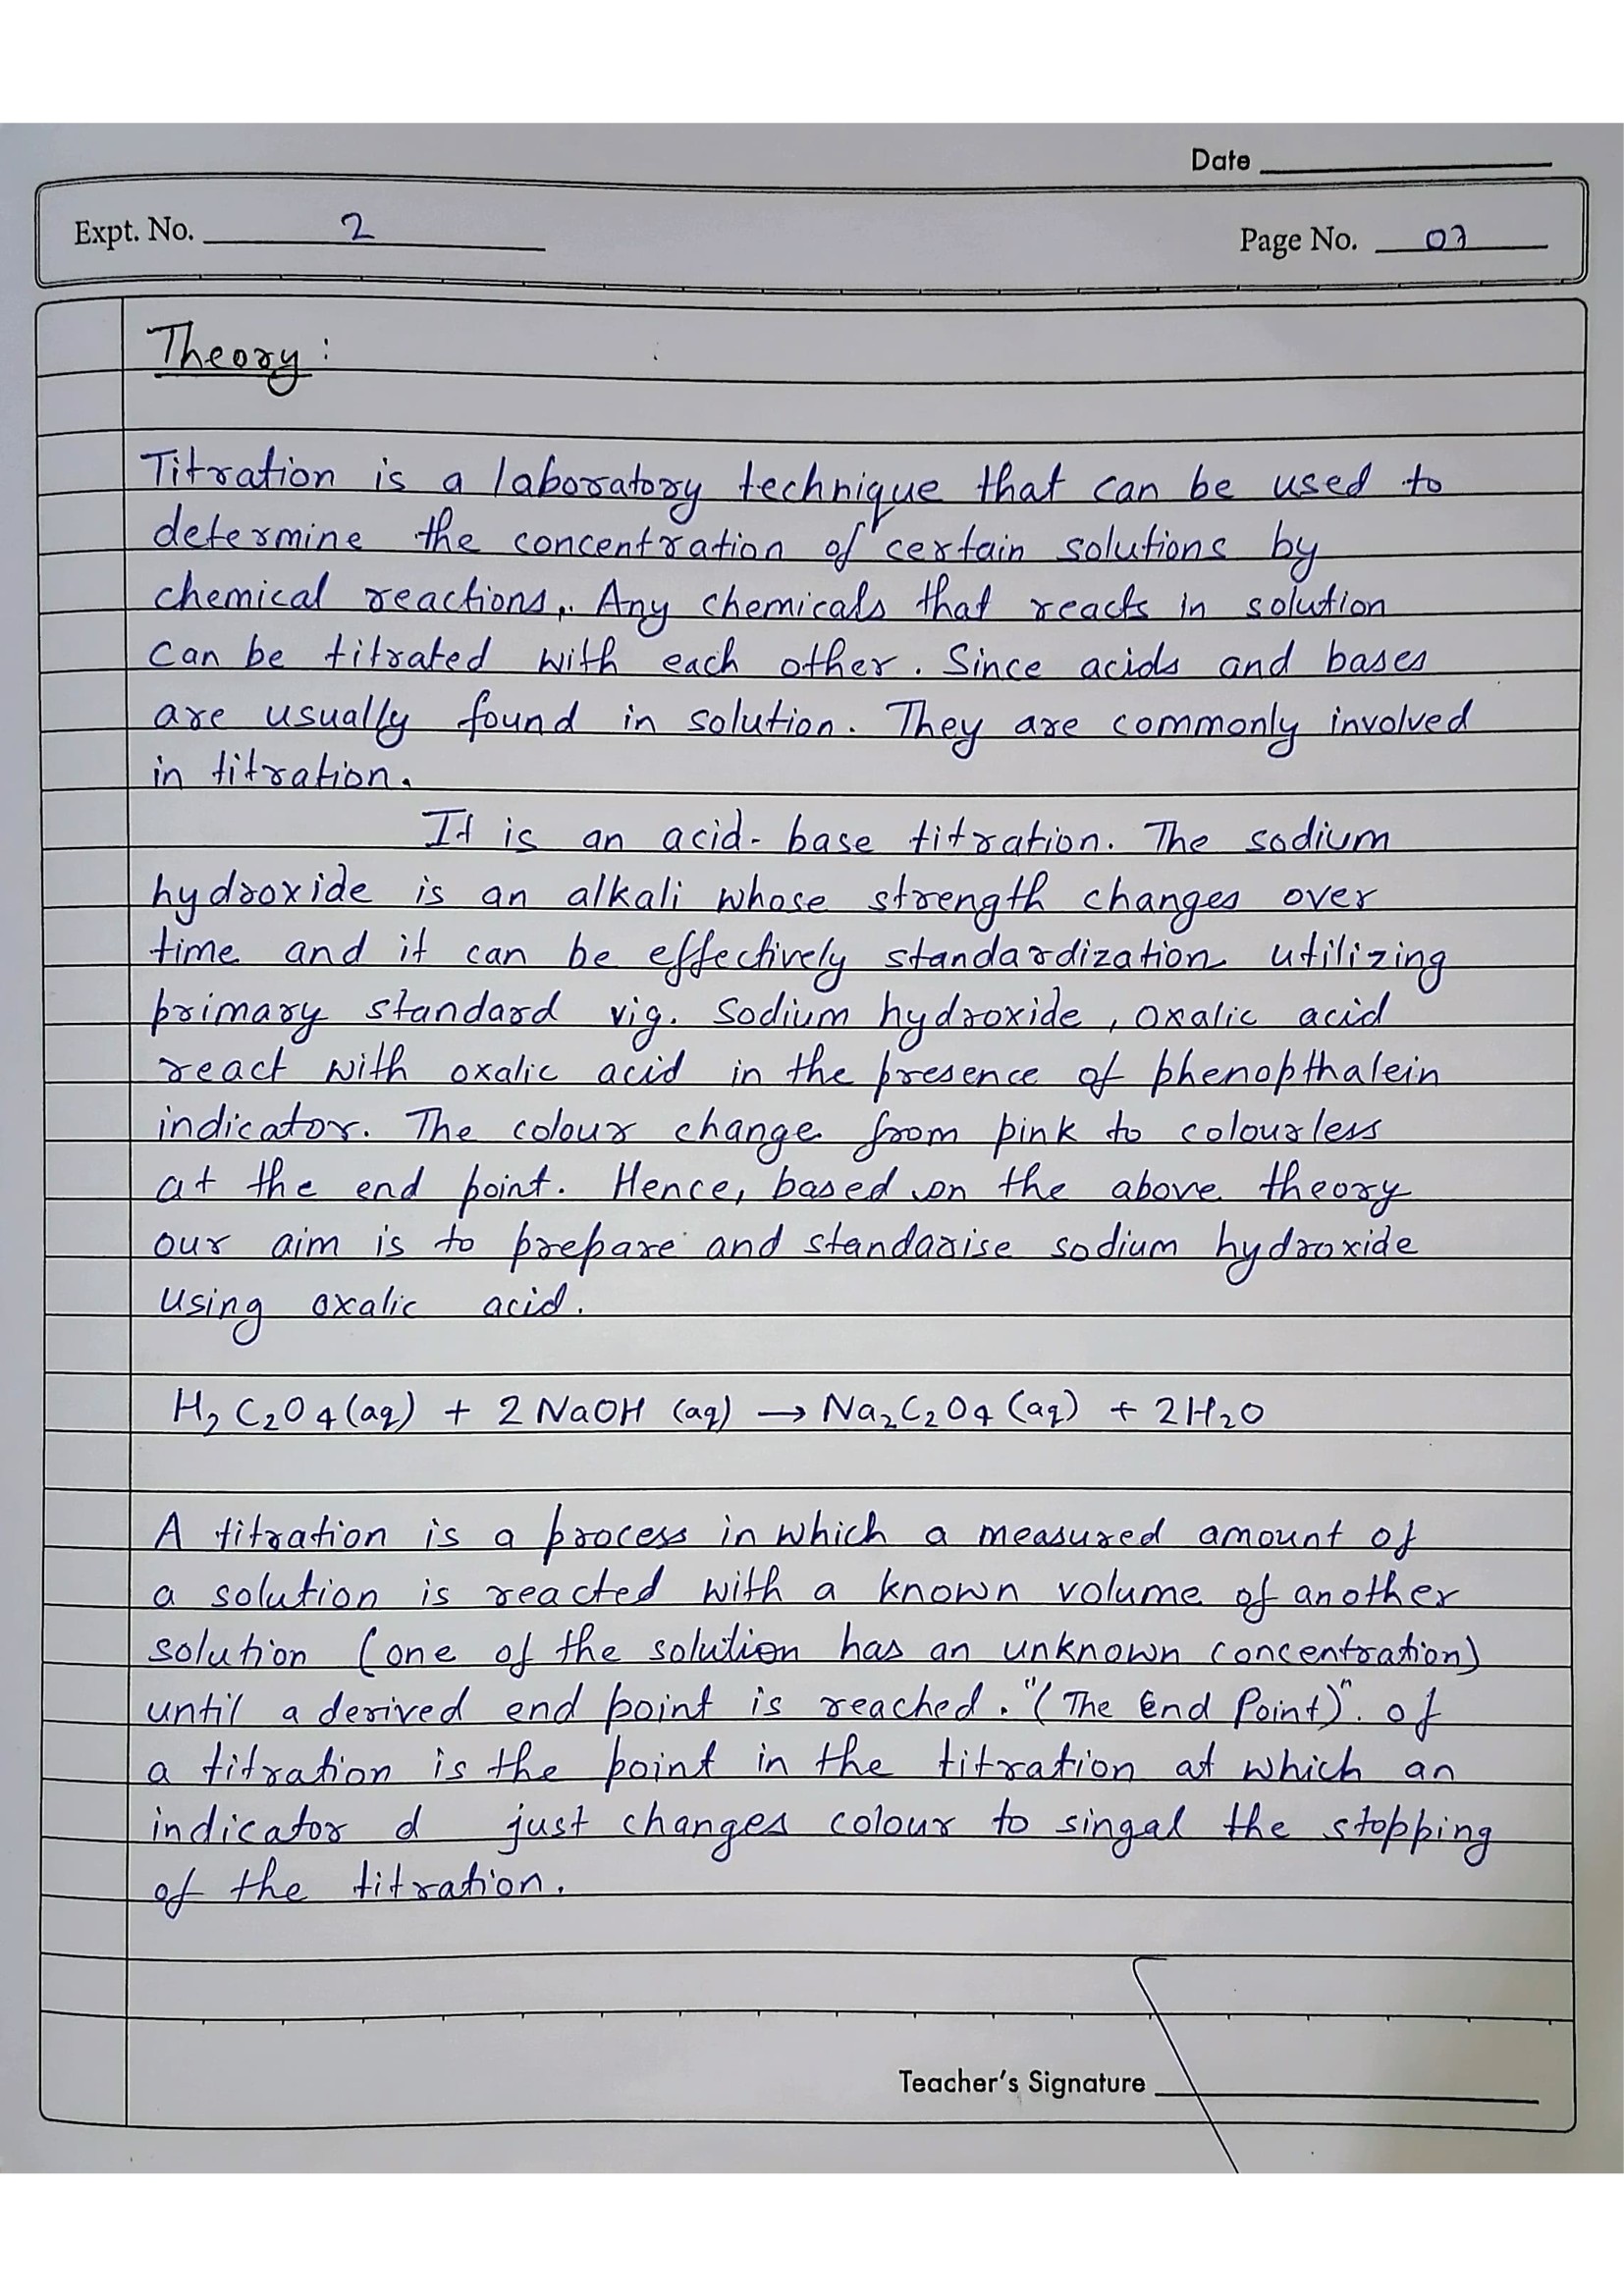 Date
Expt. No. 2
Page No. 07
Theory :
Titration is a laboratory technique that can be used to
determine the concentration of certain solutions by
chemical reactions,. Any chemicals that reacts in solution
can be titrated with each other. Since acids and bases
are usually found in solution. They are commonly involved
in titration.
It is an acid-base titration. The sodium
hydroxide is an alkali whose strength changes over
time and it can be effectively standardization utilizing
primary standard vig. Sodium hydroxide, oxalic acid
react with oxalic acid in the presence of phenopthalein
indicator. The colour change from pink to colourless
at the end point. Hence, based on the above theory
our aim is to prepare and standarise sodium hydroxide
using oxalic acid.
H₂C₂O₄(aq) + 2 NaOH (aq) → Na₂C₂O₄ (aq) + 2H₂O
A titration is a process in which a measured amount of
a solution is reacted with a known volume of another
solution (one of the solution has an unknown concentration)
until a derived end point is reached. "(The End Point)". of
a titration is the point in the titration at which an
indicator d just changes colour to singal the stopping
of the titration.
Teacher's Signature